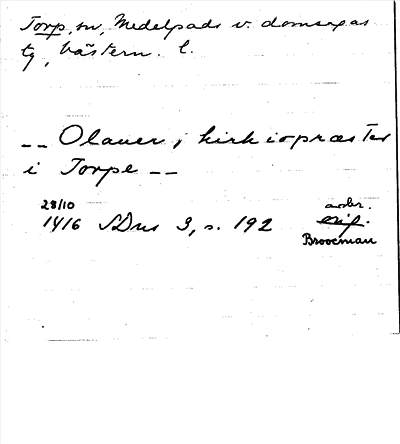 Torp, sn, Medelpads v. domsagas
tg, Västern. l.
-- Olauer, kirkiopræster
i Torpe --
28/10
1416 SDns 3, s. 192
avskr.
orig.
Broocman